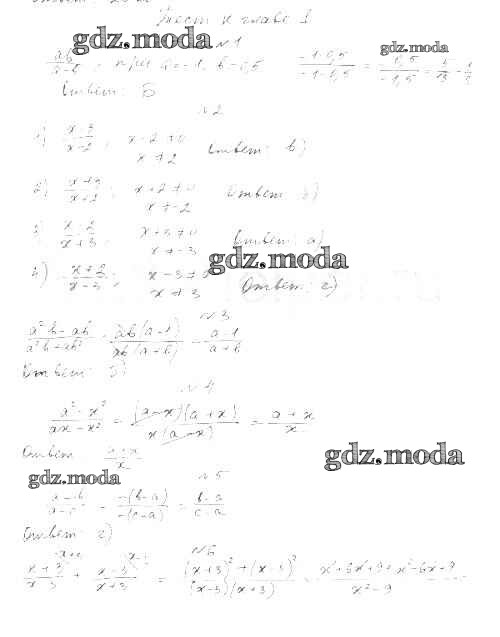 Тест к главе 1
gdz.moda
№1
gdz.moda
ab/a-b; при a=-1, b=0,5 -1·0,5/-1-0,5 = -0,5/-1,5 = 5/15 = 1/3
Ответ: Б
№2
1) x-3/x-2; x-2≠0
x≠2 Ответ: в)
2) x+3/x+2; x+2≠0
x≠-2 Ответ:
3) x-2/x+3; x+3≠0
x≠-3 Ответ: а)
gdz.moda
4) x+2/x-3; x-3≠0
x≠3 Ответ: г)
№3
a²b-ab²/a²b+ab² = ab(a-b)/ab(a+b) = a-b/a+b
Ответ:
№4
a²-x²/ax-x² = (a-x)(a+x)/x(a-x) = a+x/x
Ответ a+x/x
gdz.moda
gdz.moda
№5
a-b/a-c = -(b-a)/-(c-a) = b-a/c-a
Ответ г)
№6
x+3/x-3 + x-3/x+3 = (x+3)²+(x-3)²/(x-3)(x+3) = x²+6x+9+x²-6x+9/x²-9